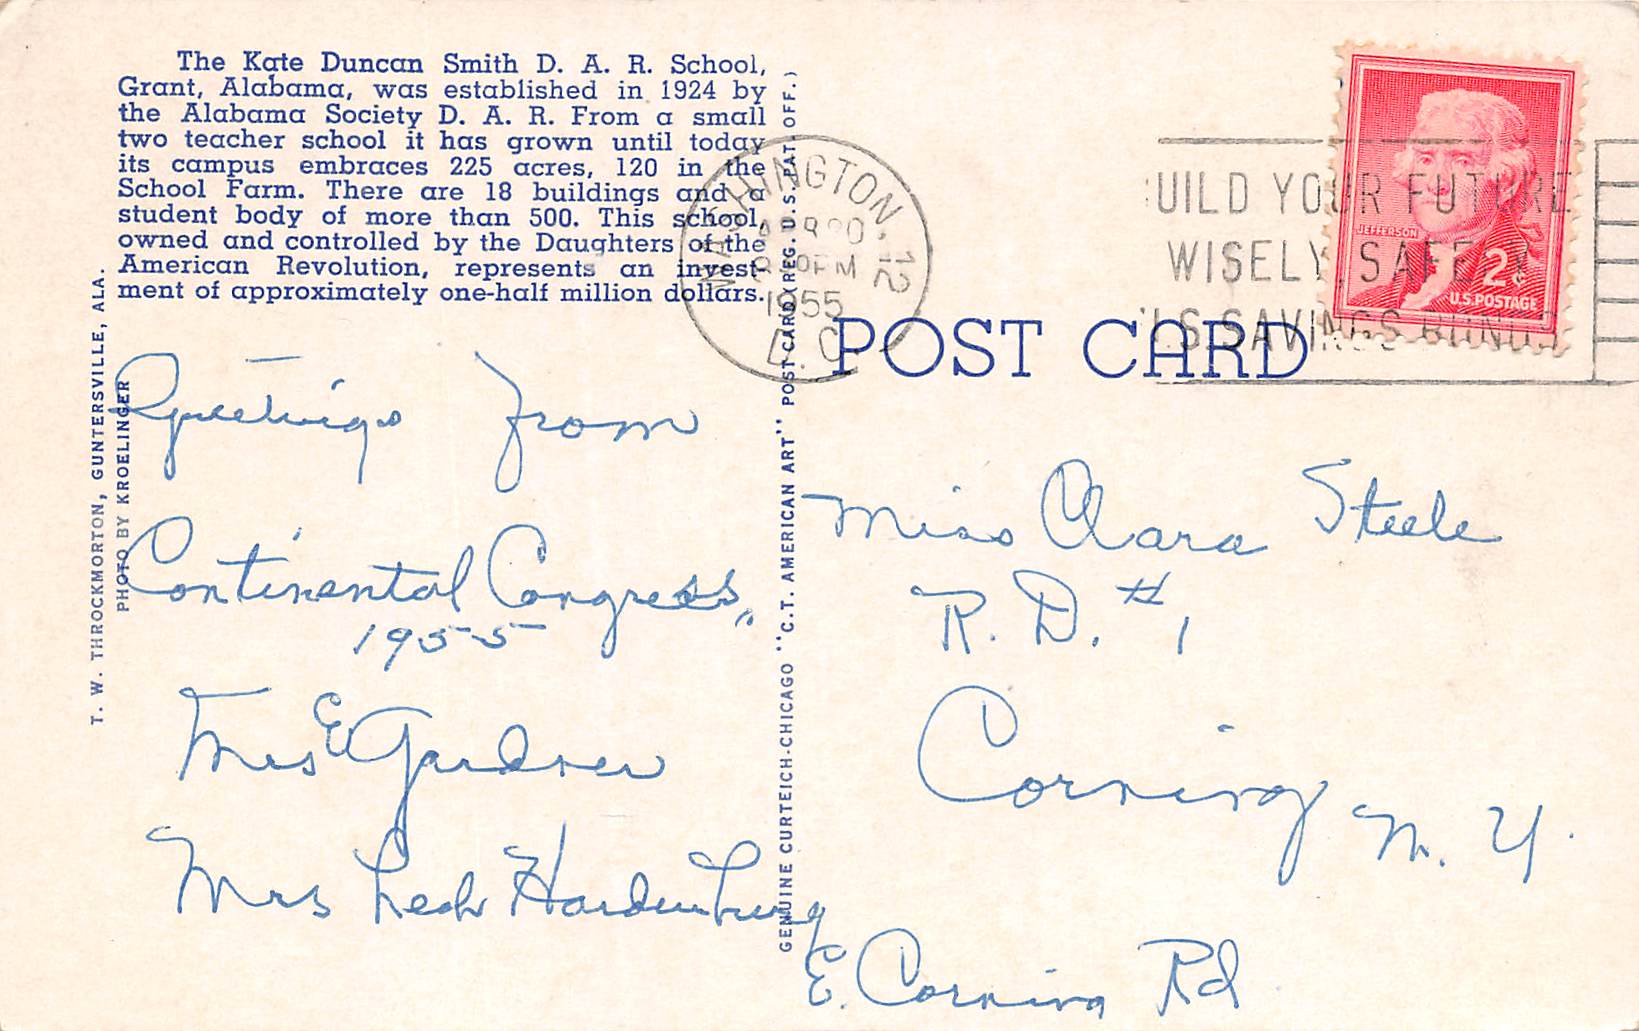 The Kate Duncan Smith D. A. R. School,
Grant, Alabama, was established in 1924 by
the Alabama Society D. A. R. From a small
two teacher school it has grown until today
its campus embraces 225 acres, 120 in the
School Farm. There are 18 buildings and a
student body of more than 500. This school,
owned and controlled by the Daughters of the
American Revolution, represents an invest-
ment of approximately one-half million dollars.
T. W. THROCKMORTON, GUNTERSVILLE, ALA.
PHOTO BY KROELINGER
Greetings from
Continental Congress,
1955
Mrs E Gardner
Mrs Hardenburg
GENUINE CURTEICH-CHICAGO "C.T. AMERICAN ART" POST CARD (REG. U.S. PAT. OFF.)
WASHINGTON, 12
APR 20
PM
1955
D. C.
POST CARD
UILD YOUR FUTURE
WISELY, SAFELY
U.S. SAVINGS BONDS
JEFFERSON
2¢
U.S. POSTAGE
Miss Clara Steele
R. D. #1
Corning N. Y.
E. Corning Rd